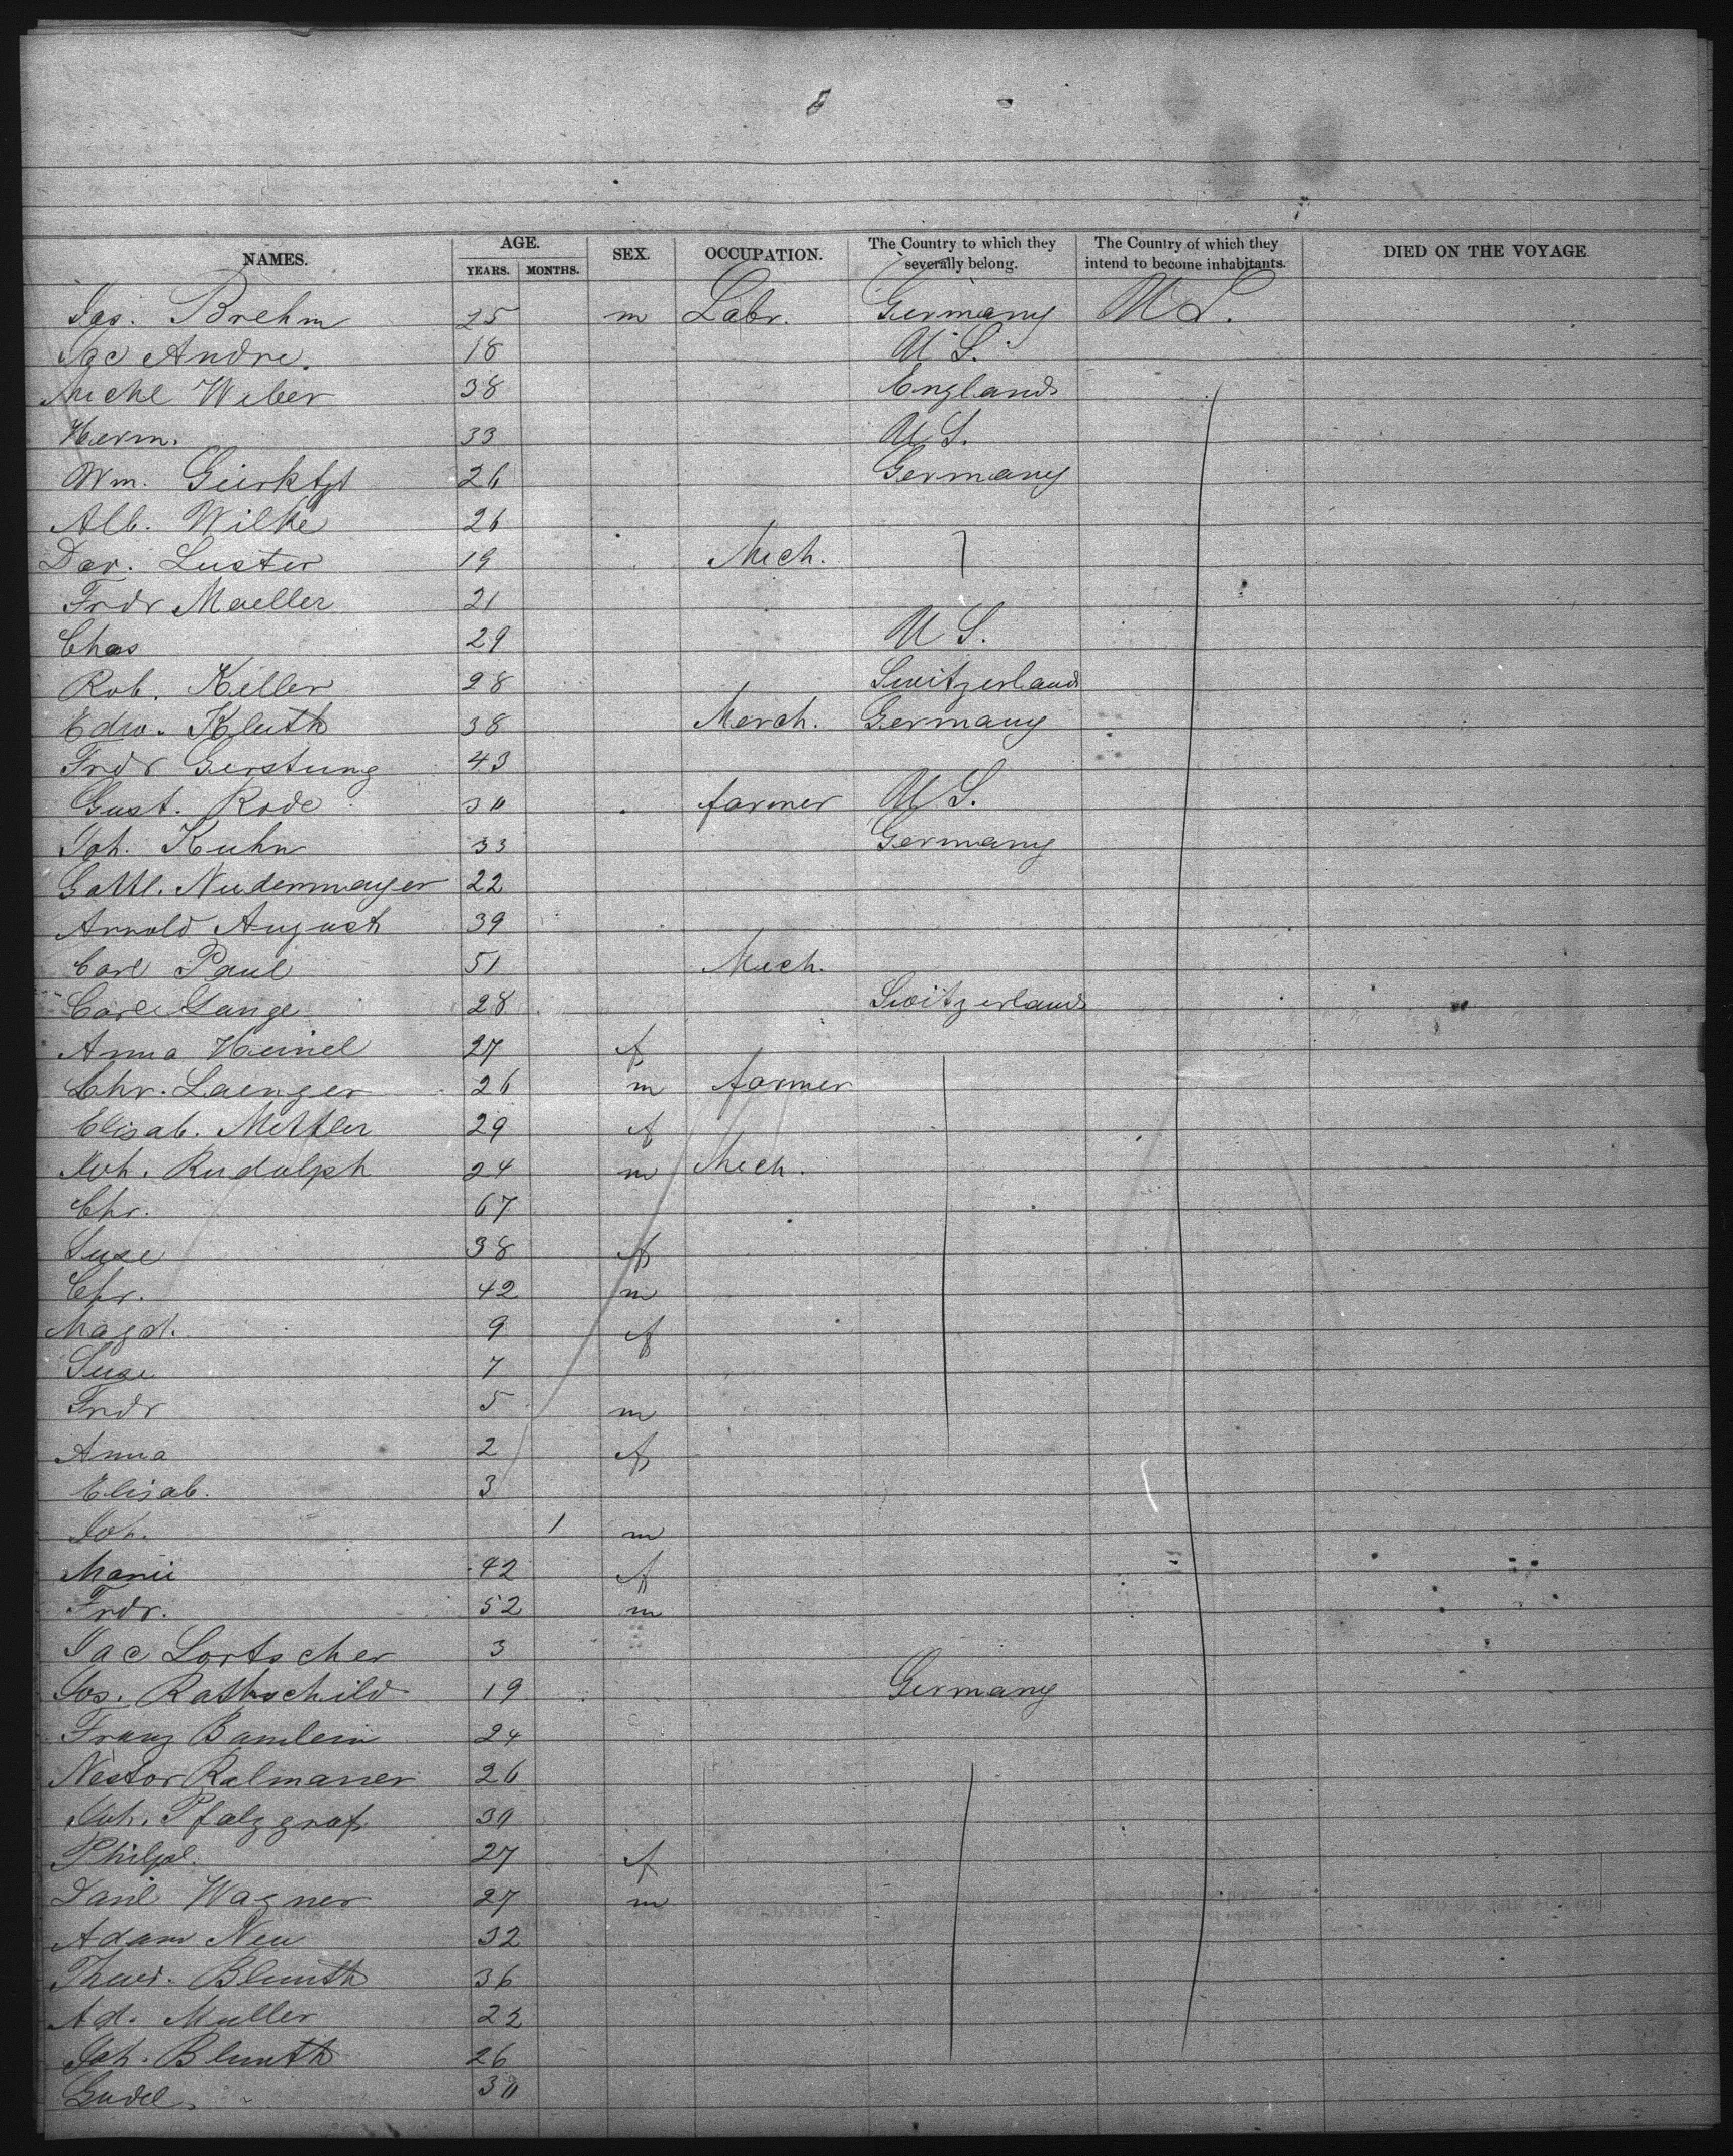 NAMES. AGE. YEARS. MONTHS. SEX. OCCUPATION. The Country to which they severally belong. The Country of which they intend to become inhabitants. DIED ON THE VOYAGE
Jas. Brehm 25 m Labr. Germany U S.
Jac Andre. 18 U S.
Michl Weber 38 England
Herm. 33 U S.
Wm. 26 Germany
Alb. Wilke 26
Dav. Luster 19 Mech.
Frdr Maeller 21
Chas 29 U S.
Rob. Keller 28 Switzerland
Edw. Kluth 38 Merch. Germany
Frdr Gerstung 43
Gust. Rode 30 farmer U S.
Joh. Kuhn 33 Germany
Gottl. Niedermayer 22
Arnold August 39
Carl Paul 51 Mech.
Carl Lange 28 Switzerland
Anna Heinel 27 f
Chr. Laenger 26 m farmer
Elisab. Mettler 29 f
Joh. Rudolph 24 m Mech.
Chr. 67
Suse 38 f
Chr. 42 m
Magd. 9 f
Suse 7
Frdr 5 m
Anna 2 f
Elisab. 3
Joh. 1 m
Marie 42 f
Frdr. 52 m
Jac Lortscher 3
Jos. Rothschild 19 Germany
Franz Bamlein 24
Nestor Ralmaner 26
Joh. Pfalzgraf 30
Philpl. 27 f
Danl Wagner 27 m
Adam Neu 32
Blunth 36
Ad. Muller 22
Joh. Blunth 26
Gudel 30